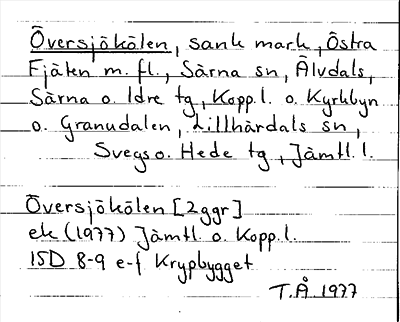 Översjökölen, sank mark, Östra
Fjäten m.fl., Särna sn, Älvdals,
Särna o. Idre tg, Kopp.l. o. Kyrkbyn
o. Granudalen, Lillhärdals sn,
Svegs o. Hede tg, Jämtl.l.
Översjökölen [2ggr]
ek (1977) Jämtl. o. Kopp.l.
15D 8-9 e-f Krypbygget
T.Å 1977